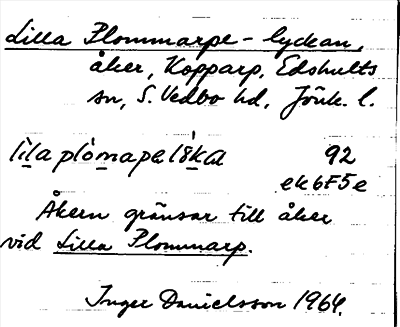 Lilla Plommarpe-lyckan,
åker, Kopparp, Edshults
sn, S. Vedbo hd, Jönk. l.
lila plomapa 92
ek6F5e
Åkern gränsar till åker
vid Lilla Plommarp.
Inger Danielsson 1964.